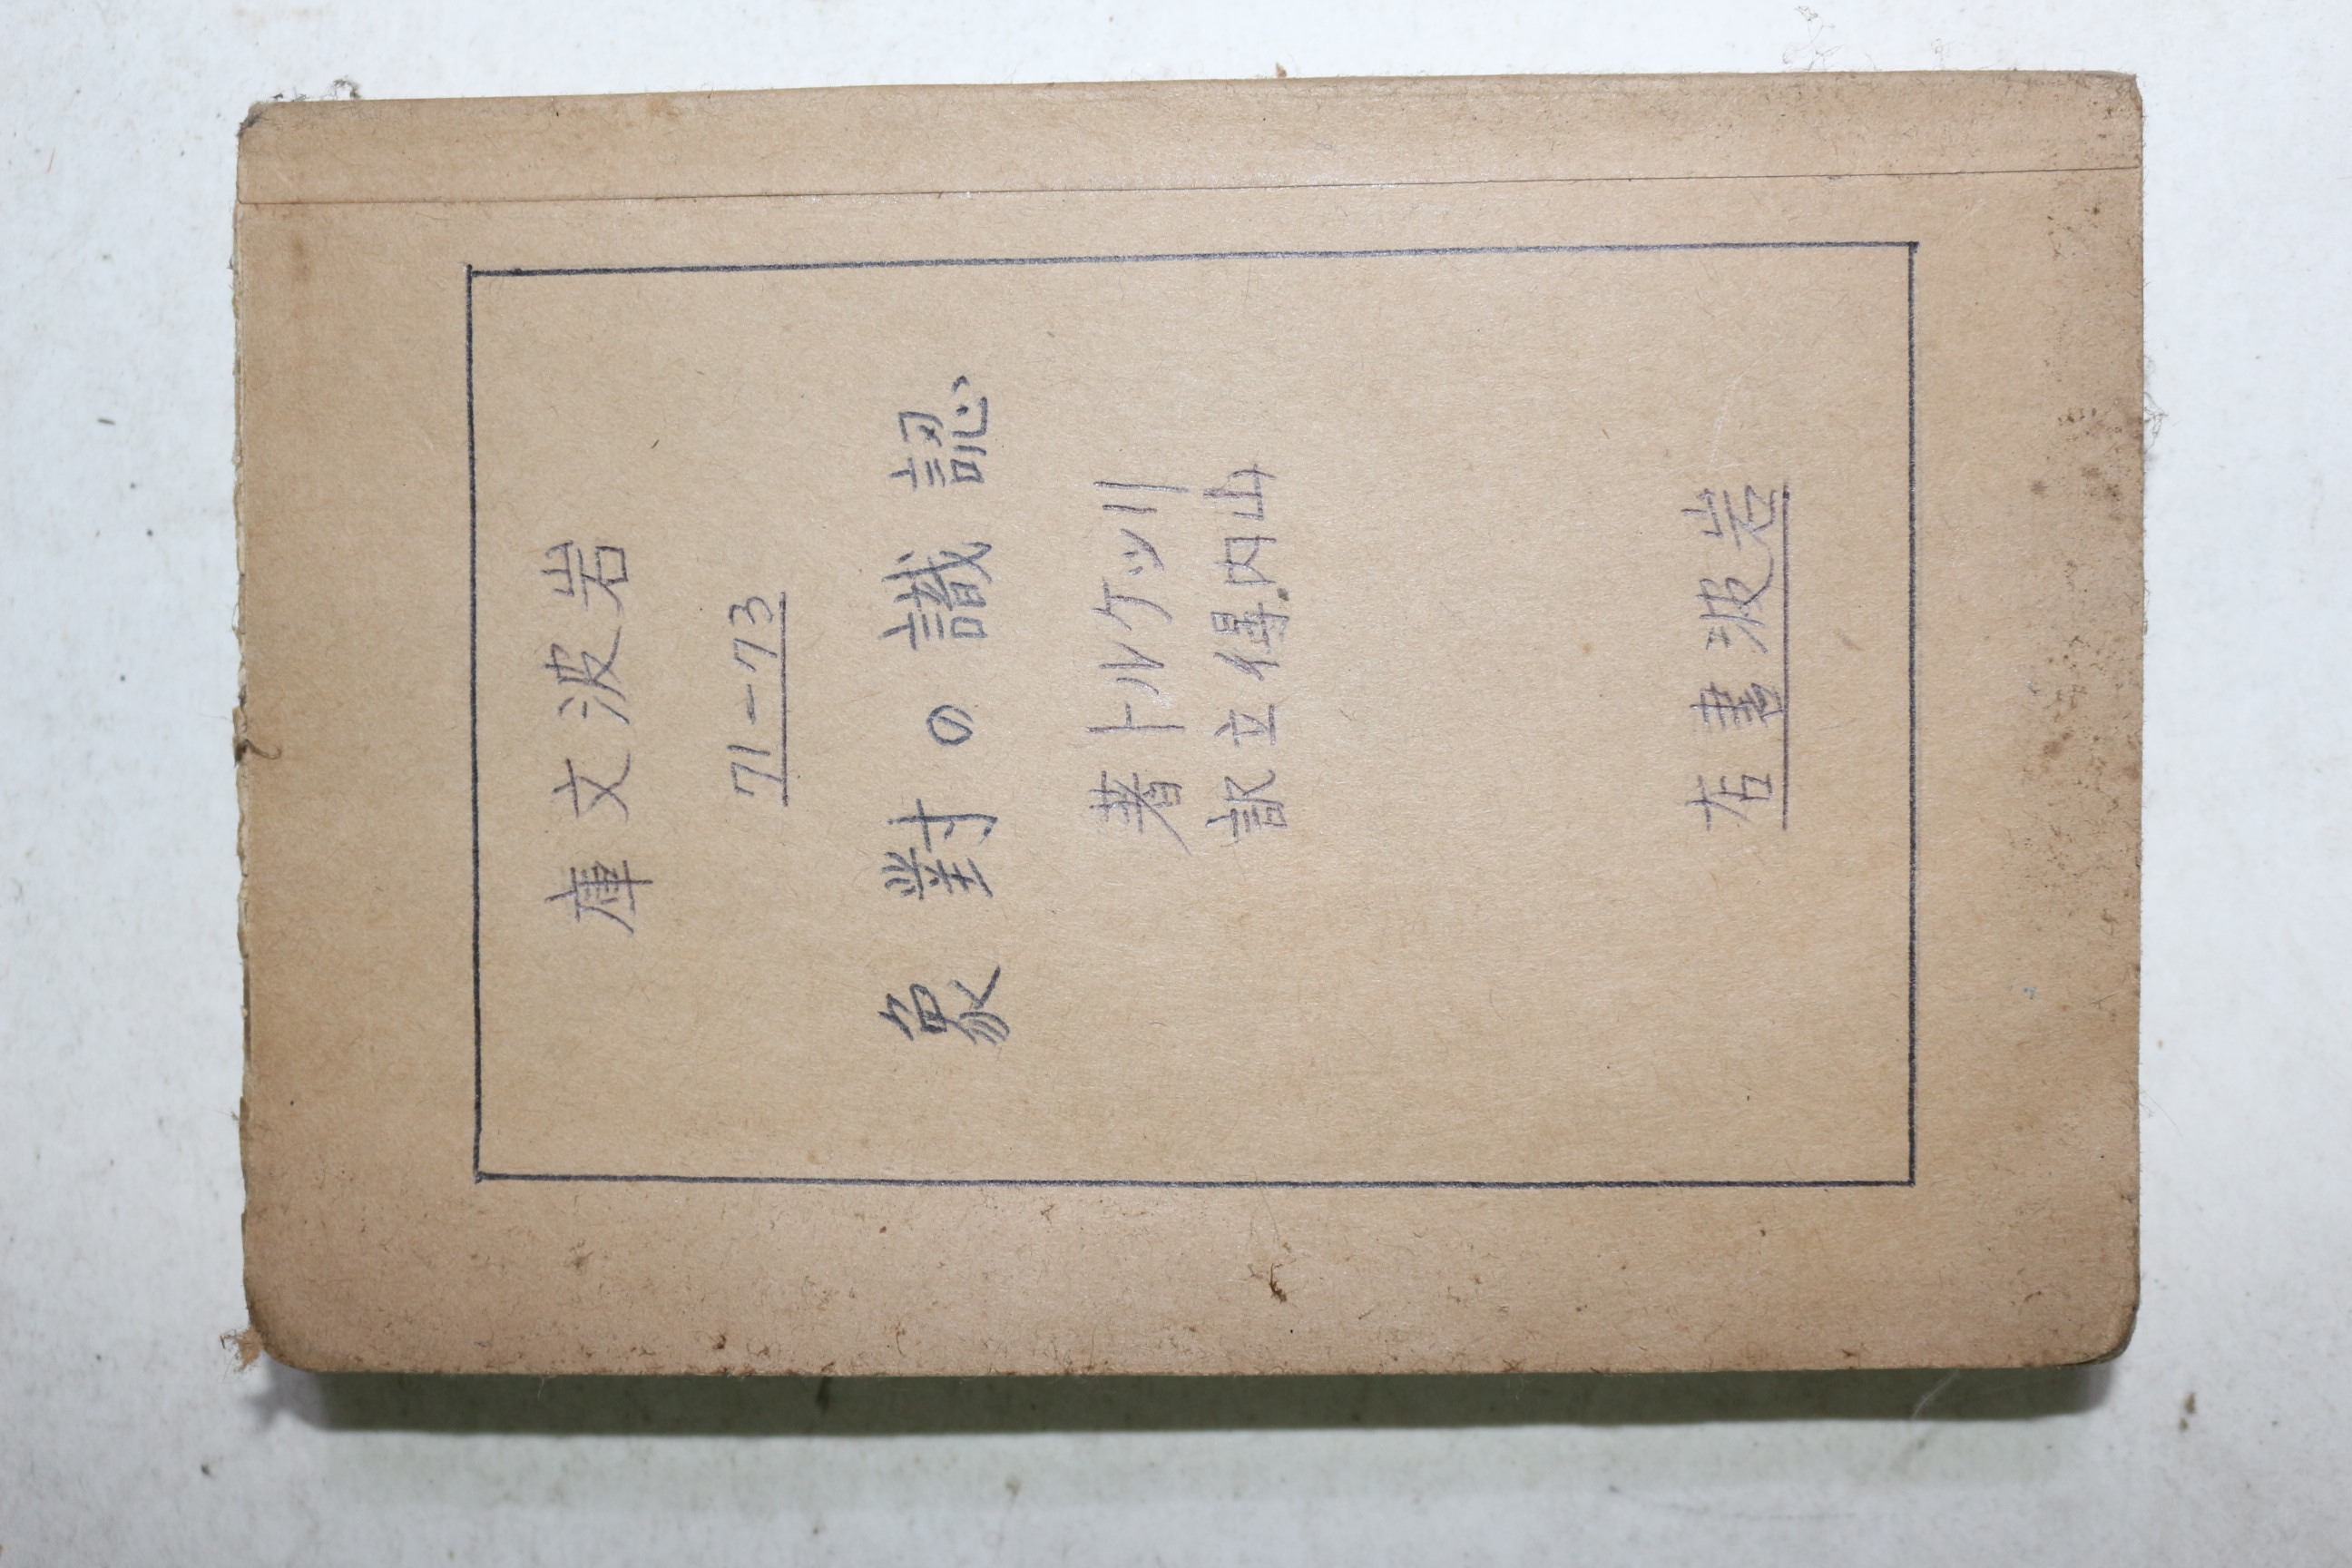 岩波文庫
71-73
認識の對象
リッケルト著
山内得立訳
岩波書店